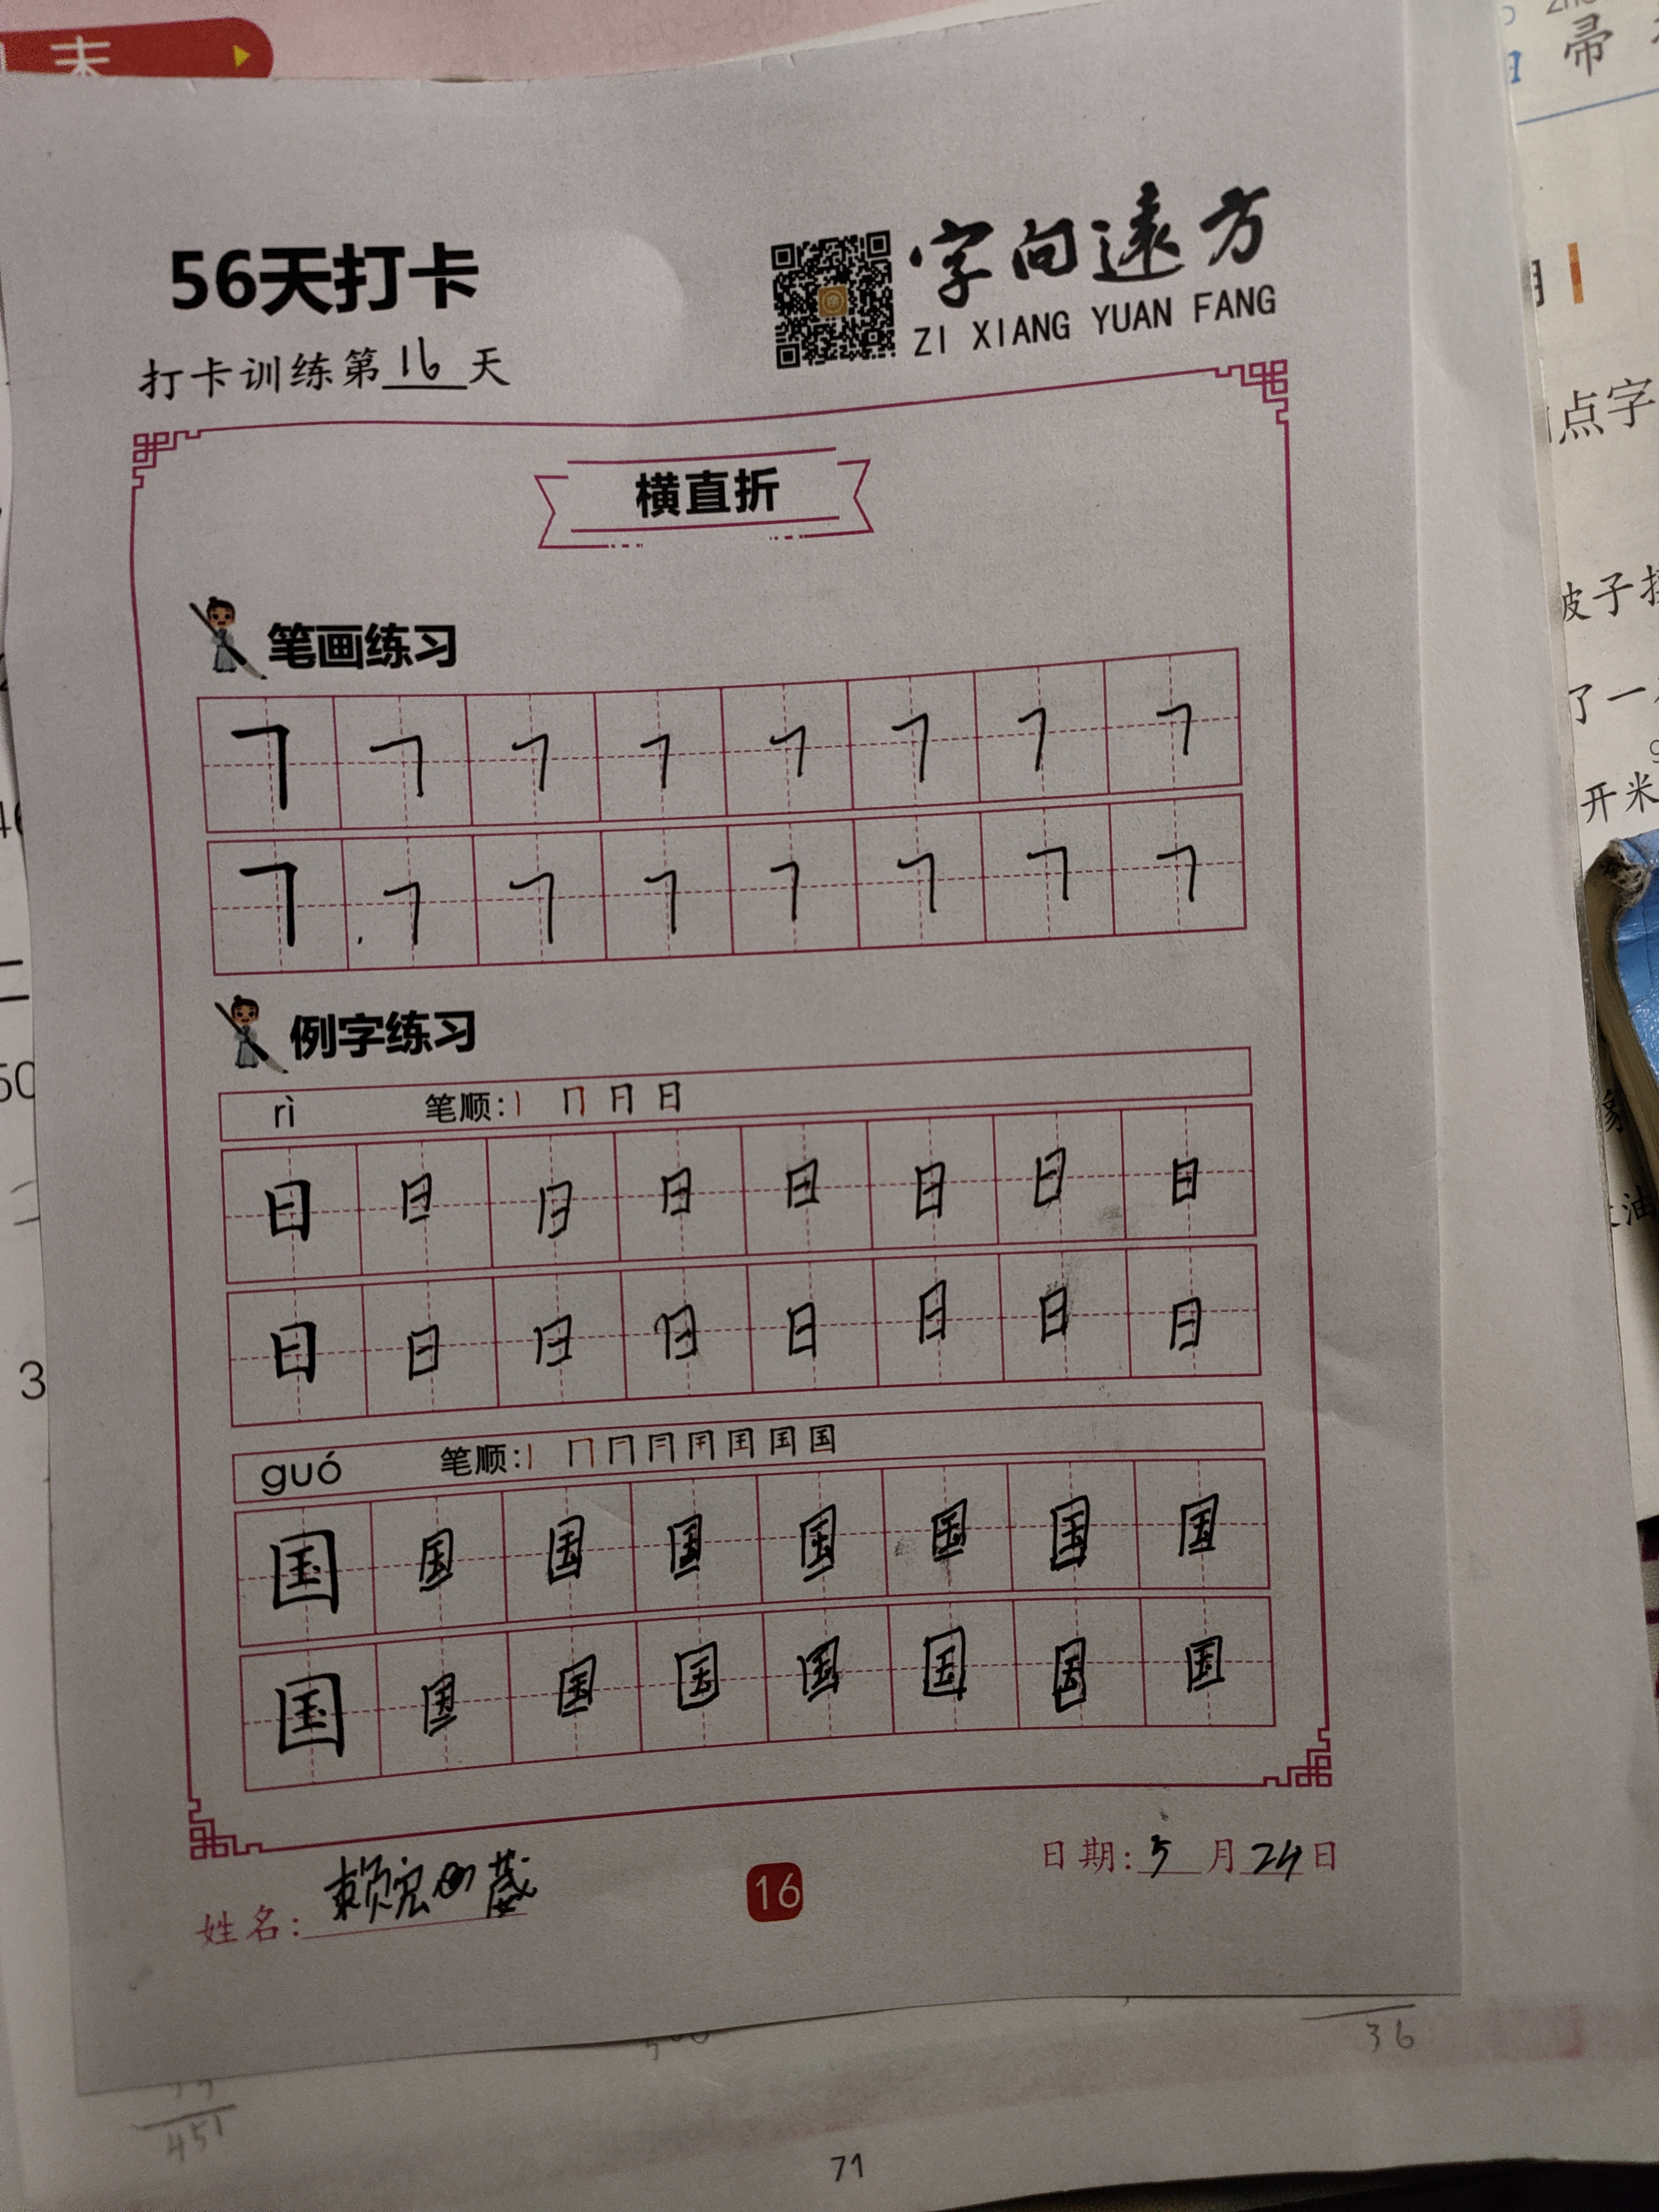 末
56天打卡
打卡训练第16天
字向遠方
ZI XIANG YUAN FANG
横直折
笔画练习
㇕ ㇕ ㇕ ㇕ ㇕ ㇕ ㇕ ㇕
㇕ ㇕ ㇕ ㇕ ㇕ ㇕ ㇕ ㇕
例字练习
rì 笔顺:丨 冂 月 日
日 日 日 日 日 日 日 日
日 日 日 日 日 日 日 日
guó 笔顺:
国 国 国 国 国 国 国 国
国 国 国 国 国 国 国 国
姓名:赖宏
16
日期:5月24日
点字
波子
了一
开米
油
3
36
451
71